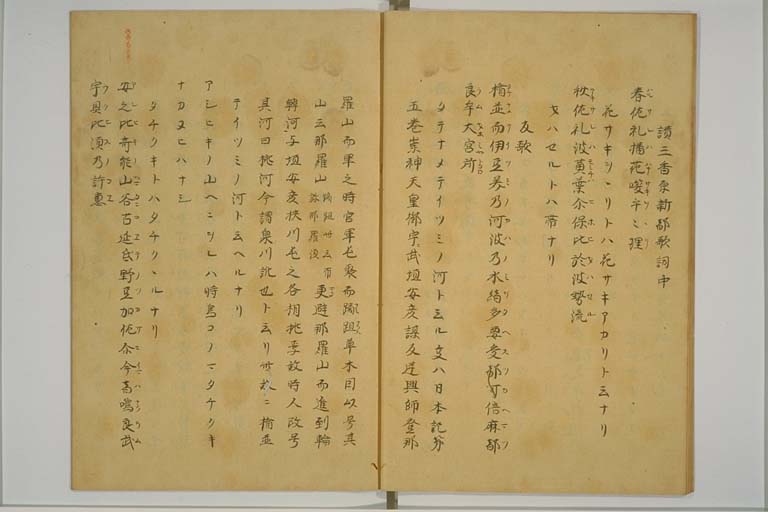 讃三香原新都歌詞中
春佐礼播花咲乎ヽ理
花サキヲヽリトハ花サキアカリト云ナリ
秋佐礼波黄葉尓保比於波勢流
ヲハセルトハ帯ナリ
反歌
楯並而伊豆美乃河波乃水緒多要受都可倍麻都
良牟大宮所
タテナメテイツミノ河トヨメル文ハ日本記第
五巻崇神天皇御宇武埴安彦謀反逆興師登那
羅山而軍之時官軍屯聚而蹢跙草木因以号其
山云那羅山 蹢跙此云布弥那羅須 更避那羅山而進到輪
韓河与埴安彦挟川屯之各相挑焉故時人改号
其河曰挑河今謂泉川訛也ト云リ ニ楯並
テイツミノ河ト云ヘルナリ
アシヒキノ山ヘニヲレハ時鳥コノマタチクキ
ナカヌヒハナシ
タチクキトハタチクヽルナリ
安之比奇能山谷古延氐野豆加佐尓今者鳴良武
宇具比須乃許恵